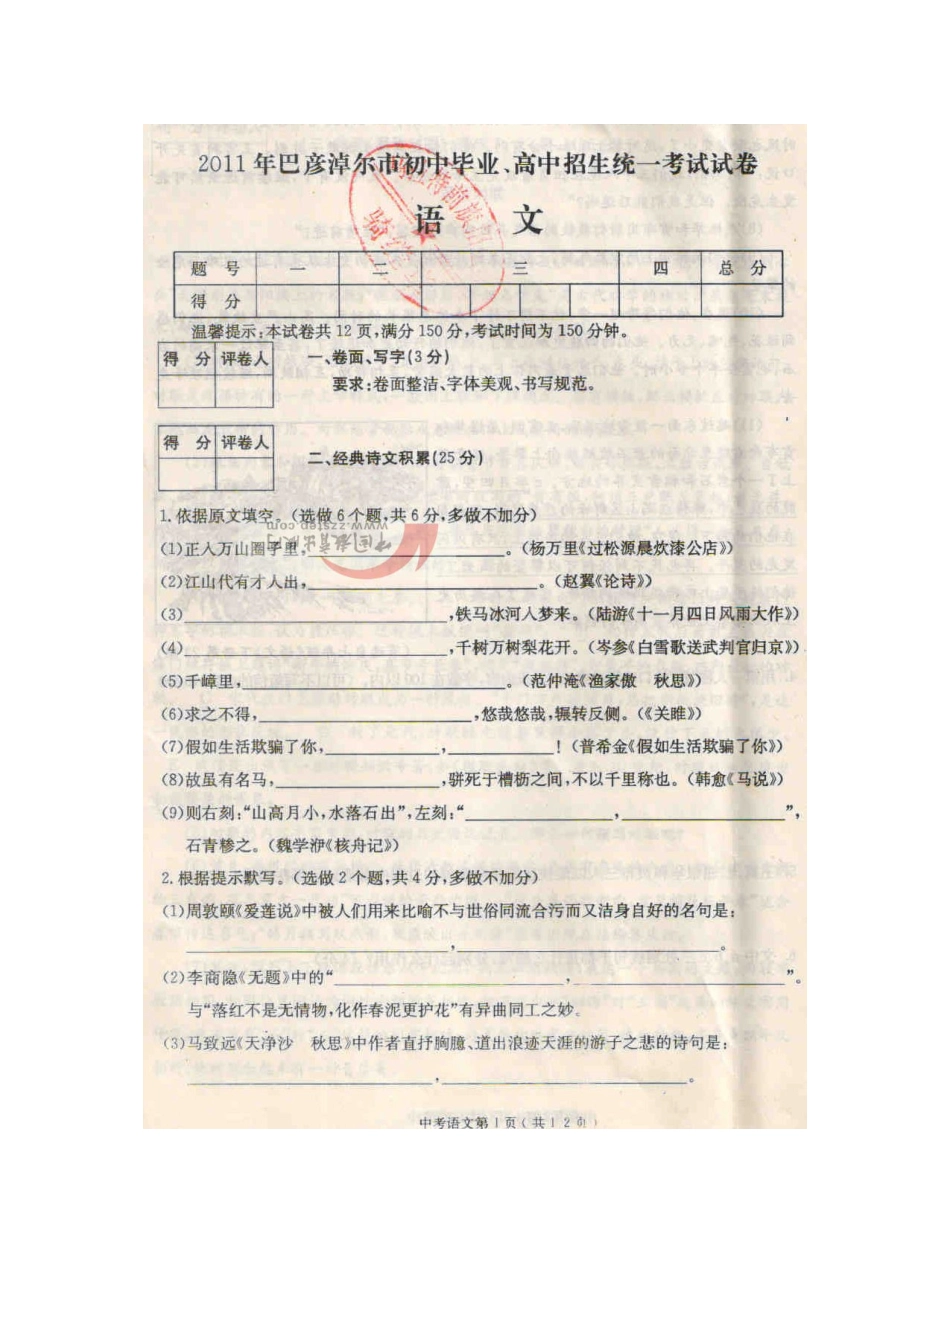 2011年巴彦淖尔市初中毕业、高中招生统一考试试卷
语 文
题 号 一 二 三 四 总 分
得 分
温馨提示:本试卷共12页,满分150分,考试时间为150分钟。
得 分 评卷人
一、卷面、写字(3分)
要求:卷面整洁、字体美观、书写规范。
得 分 评卷人
二、经典诗文积累(25分)
1.依据原文填空。(选做6个题,共6分,多做不加分)
www.zzstep.com
(1)正入万山圈子里,____。(杨万里《过松源晨炊漆公店》)
(2)江山代有才人出,____。(赵翼《论诗》)
(3)____,铁马冰河入梦来。(陆游《十一月四日风雨大作》)
(4)____,千树万树梨花开。(岑参《白雪歌送武判官归京》)
(5)千嶂里,____。(范仲淹《渔家傲 秋思》)
(6)求之不得,____,悠哉悠哉,辗转反侧。(《关雎》)
(7)假如生活欺骗了你,____,____!(普希金《假如生活欺骗了你》)
(8)故虽有名马,____,骈死于槽枥之间,不以千里称也。(韩愈《马说》)
(9)则右刻:“山高月小,水落石出”,左刻:“____,____”,
石青糁之。(魏学洢《核舟记》)
2.根据提示默写。(选做2个题,共4分,多做不加分)
(1)周敦颐《爱莲说》中被人们用来比喻不与世俗同流合污而又洁身自好的名句是:
____,____。
(2)李商隐《无题》中的“____,____”。
与“落红不是无情物,化作春泥更护花”有异曲同工之妙。
(3)马致远《天净沙 秋思》中作者直抒胸臆、道出浪迹天涯的游子之悲的诗句是:
____,____。
中考语文第1页(共12页)